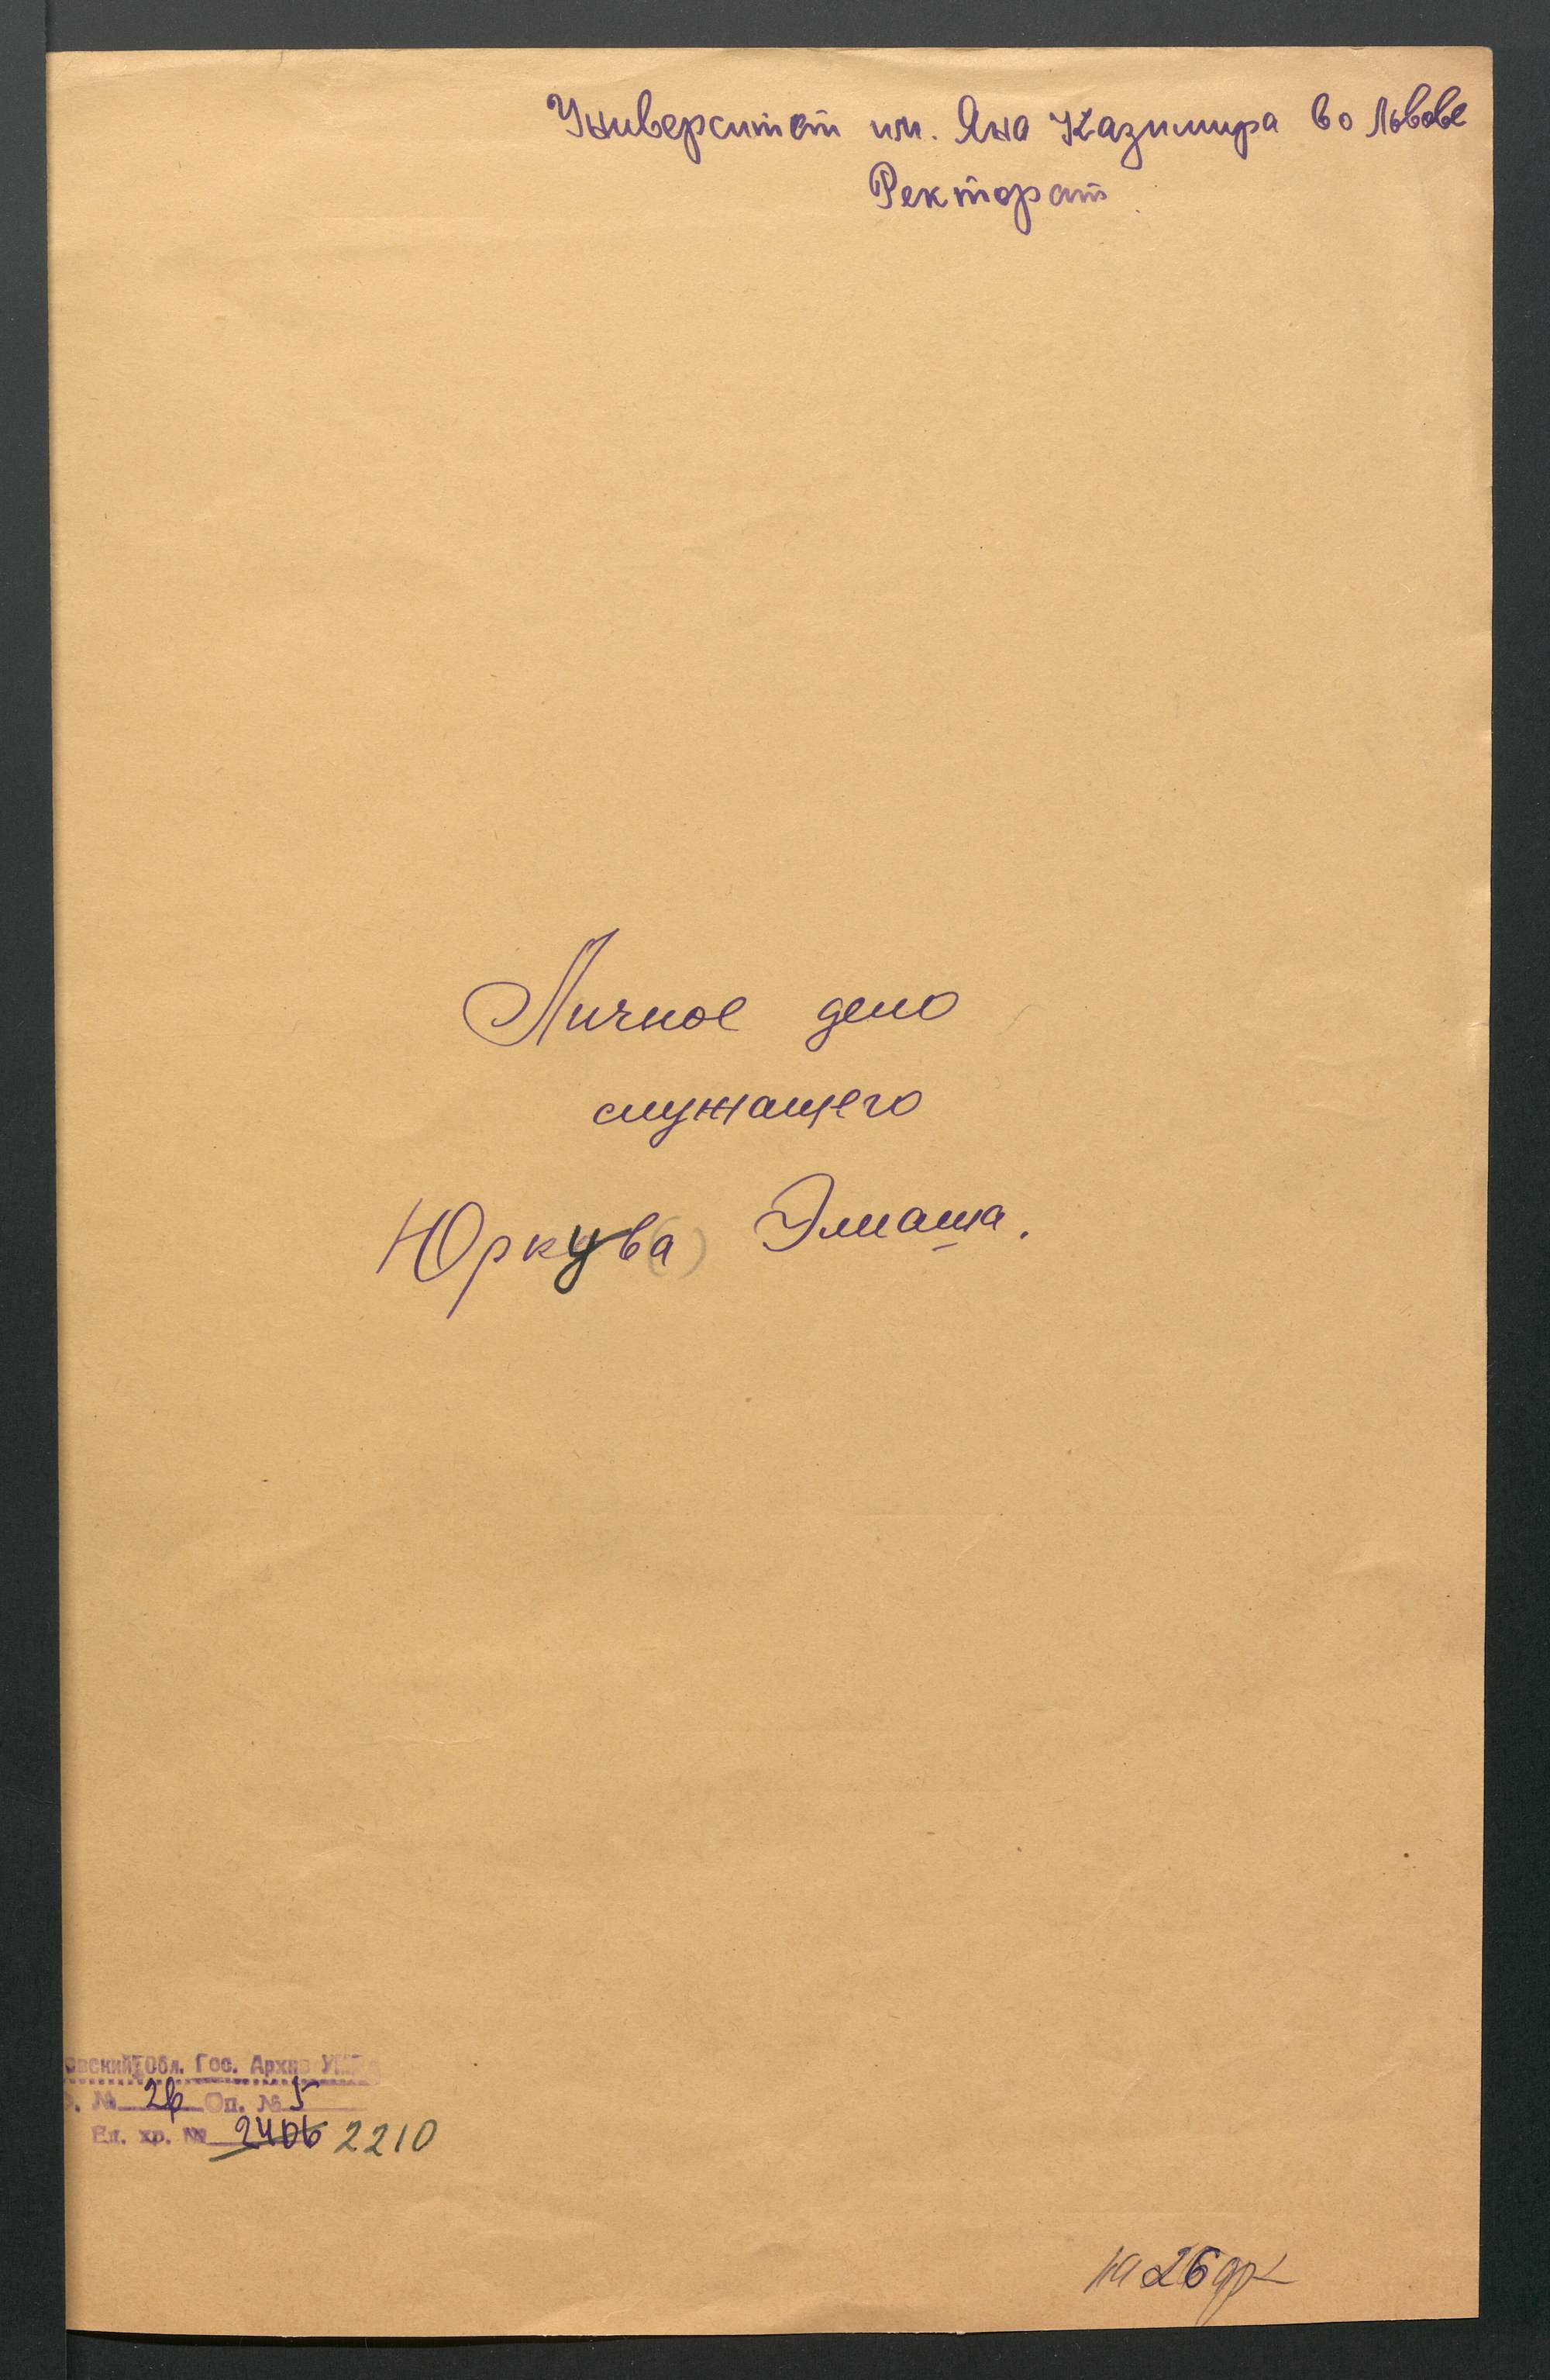 Университет им. Яна Казимира во Львове
Ректорат
Личное дело
служащего
Юркува Элиаша.
овский Обл. Гос. Архив
№ 26 Оп. № 5
Ед. хр. № 2406 2210
на 26